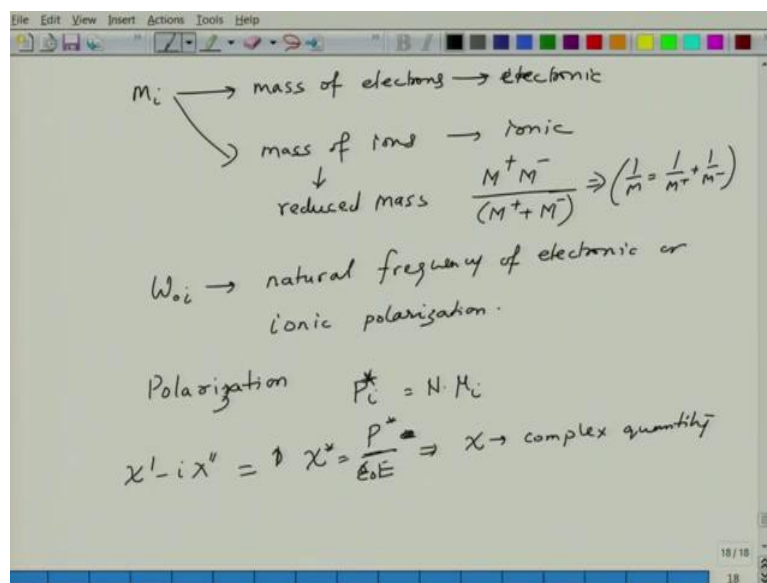 File Edit View Insert Actions Tools Help
mᵢ → mass of electrons → electronic
→ mass of ions → ionic
↓
reduced mass M⁺M⁻/(M⁺+M⁻) ⇒ (1/M = 1/M⁺ + 1/M⁻)
ω₀ᵢ → natural frequency of electronic or
ionic polarization.
Polarization Pᵢ* = N.μᵢ
χ' - iχ'' = χ* = P*/ε₀E ⇒ χ → complex quantity
18 / 18
18